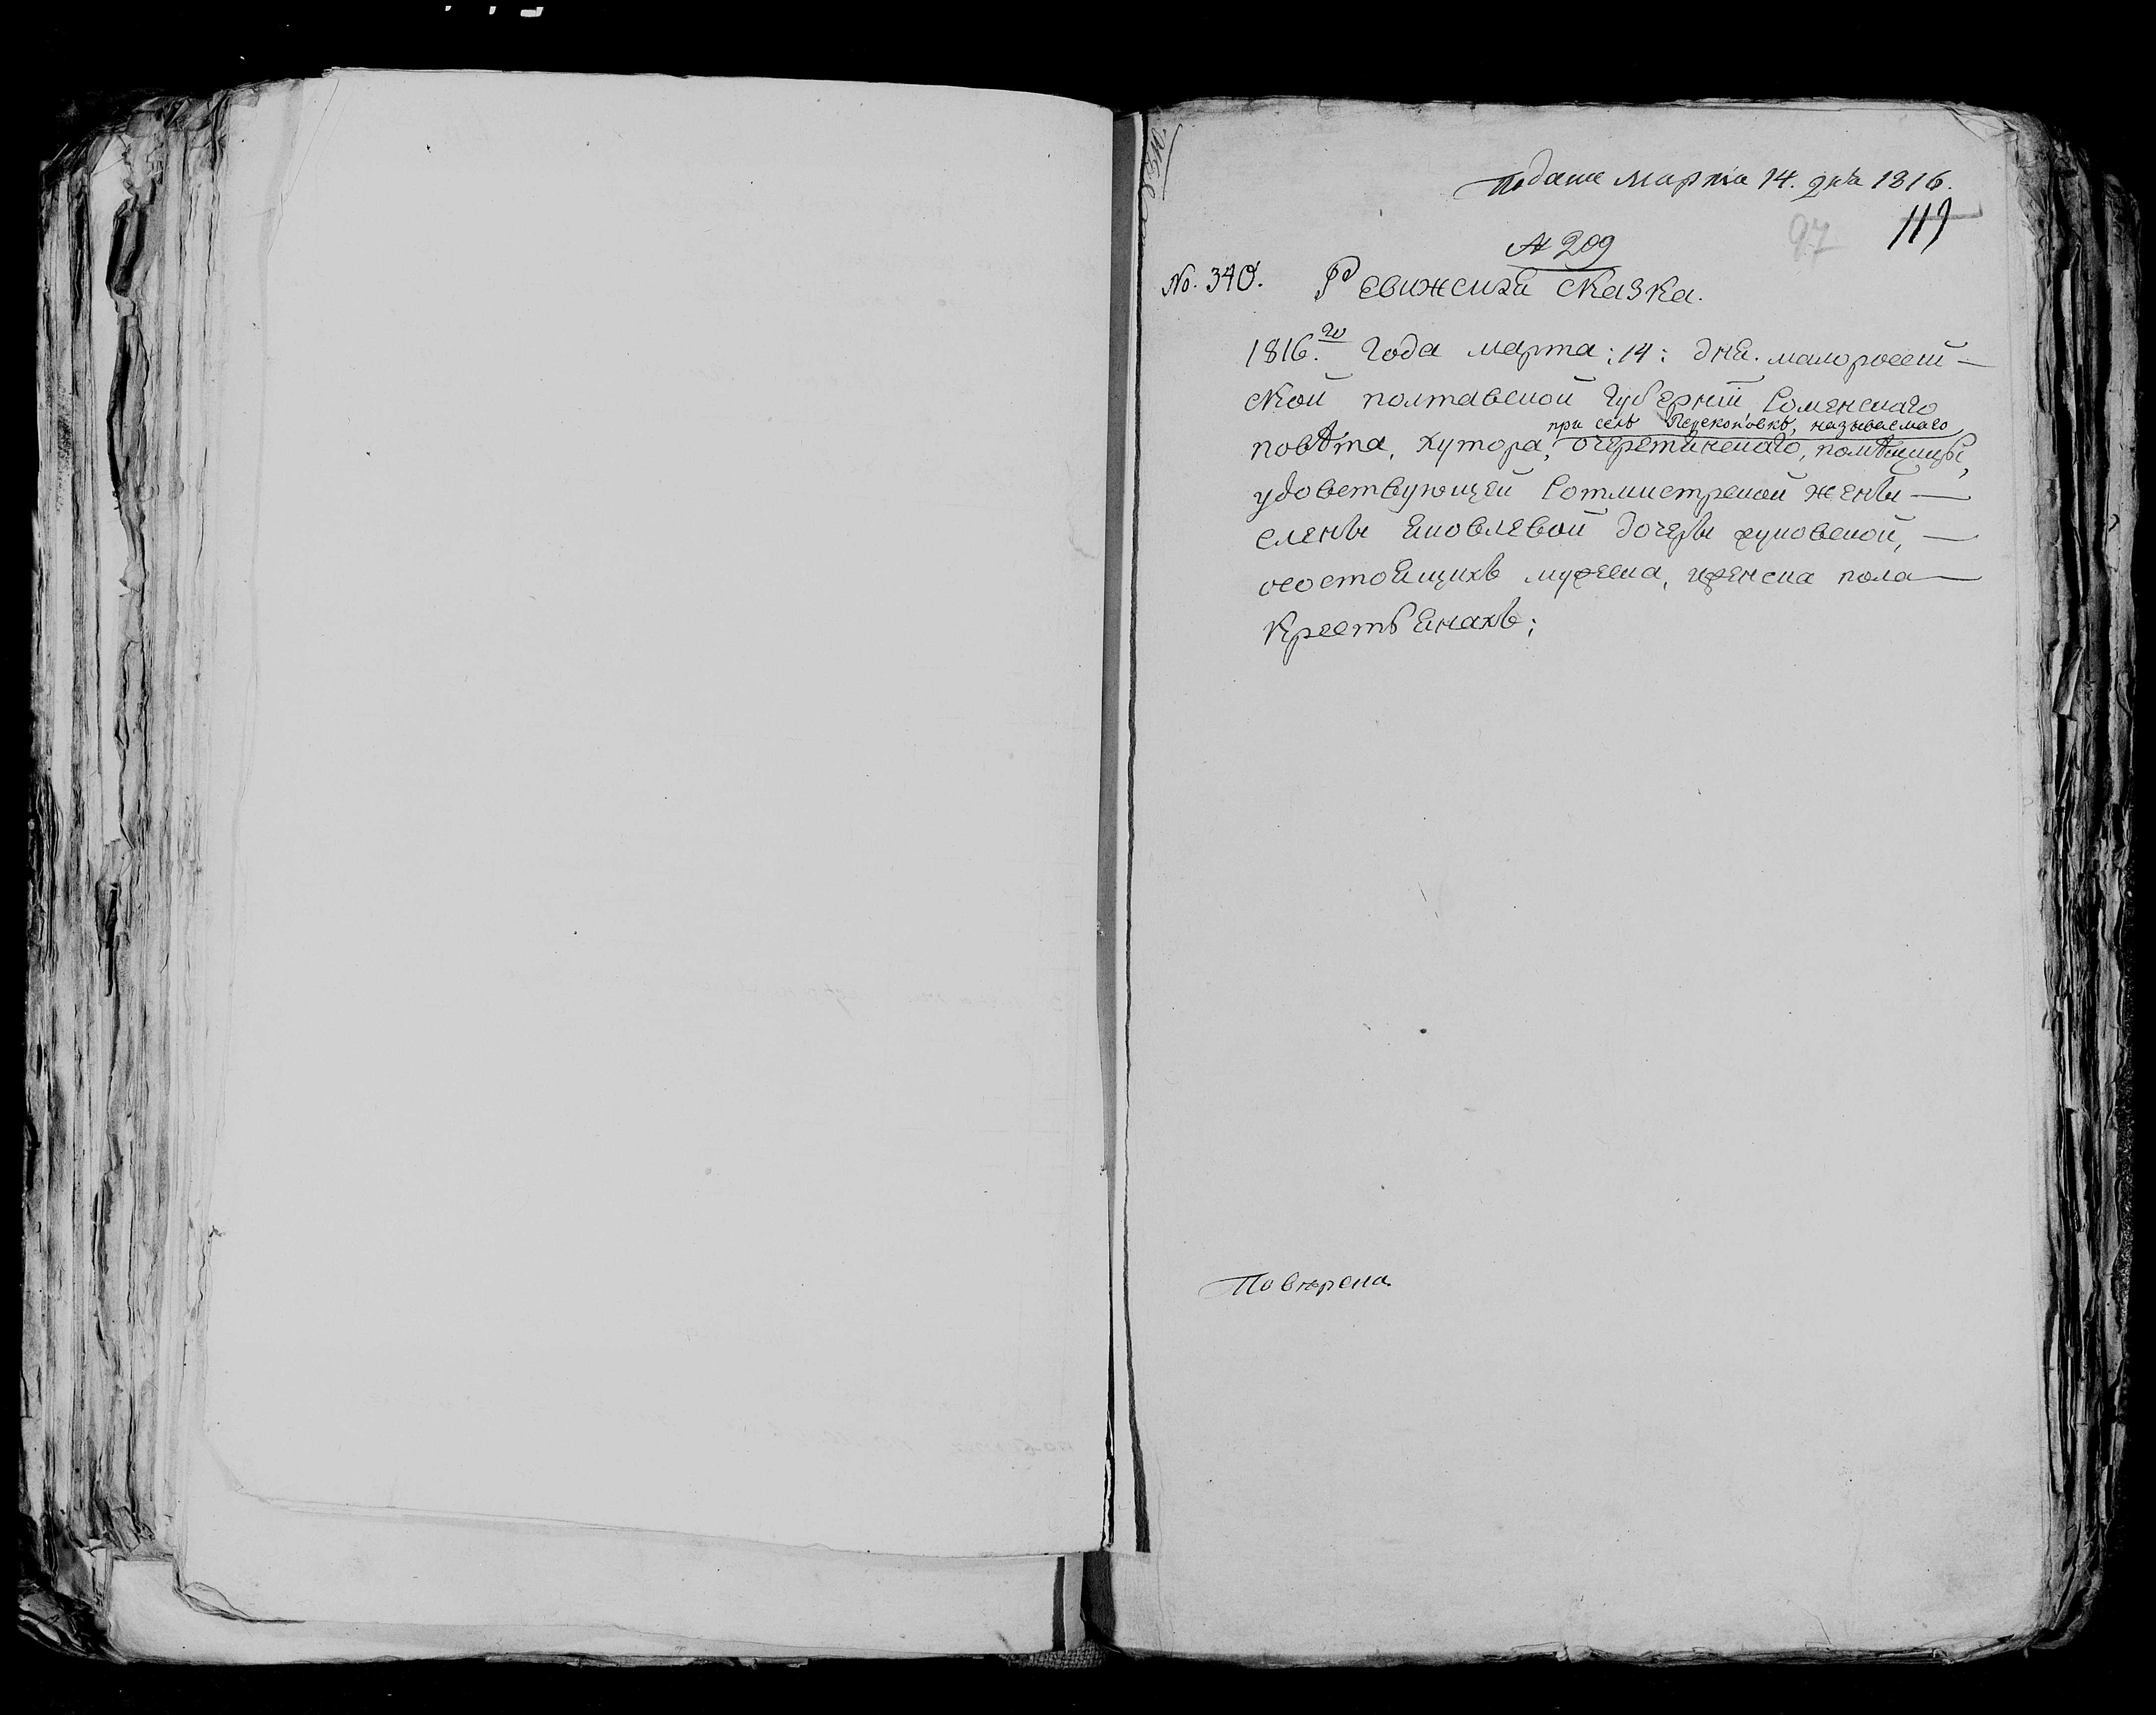 Подана Марта 14. дня 1816.
119
97
№ 209
No. 340.
Ревижская сказка.
1816.го года марта :14: дня. малороссій–
ской полтавской Губерніи Роменскаго
при селѣ Перекоповкѣ, называемаго
повѣта, хутора, очеретинскаго, помѣщицы,
удовствующей Ротмистрской жены —
елены Яковлевой дочеры —
осостоящихъ мужеска, иженска пола —
крестьянахъ;
Повѣрена